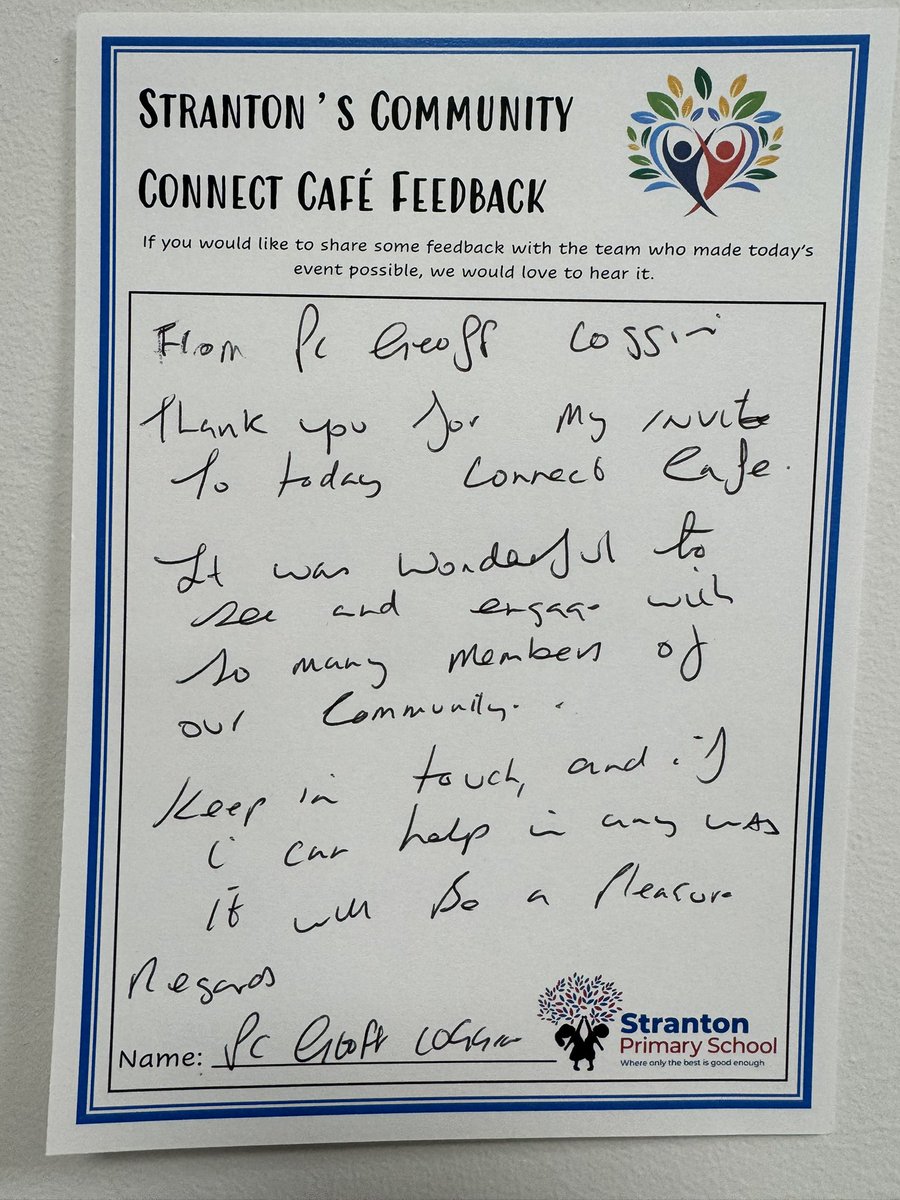 STRANTON'S COMMUNITY
CONNECT CAFÉ FEEDBACK
If you would like to share some feedback with the team who made today's
event possible, we would love to hear it.
From Pc Geoff
Thank you for my invite
to today connect Cafe.
It was wonderful to
see and engage with
so many members of
our Community.
Keep in touch, and if
i can help in any way
it will be a pleasure
Regards
Name: Pc Geoff
Stranton
Primary School
Where only the best is good enough